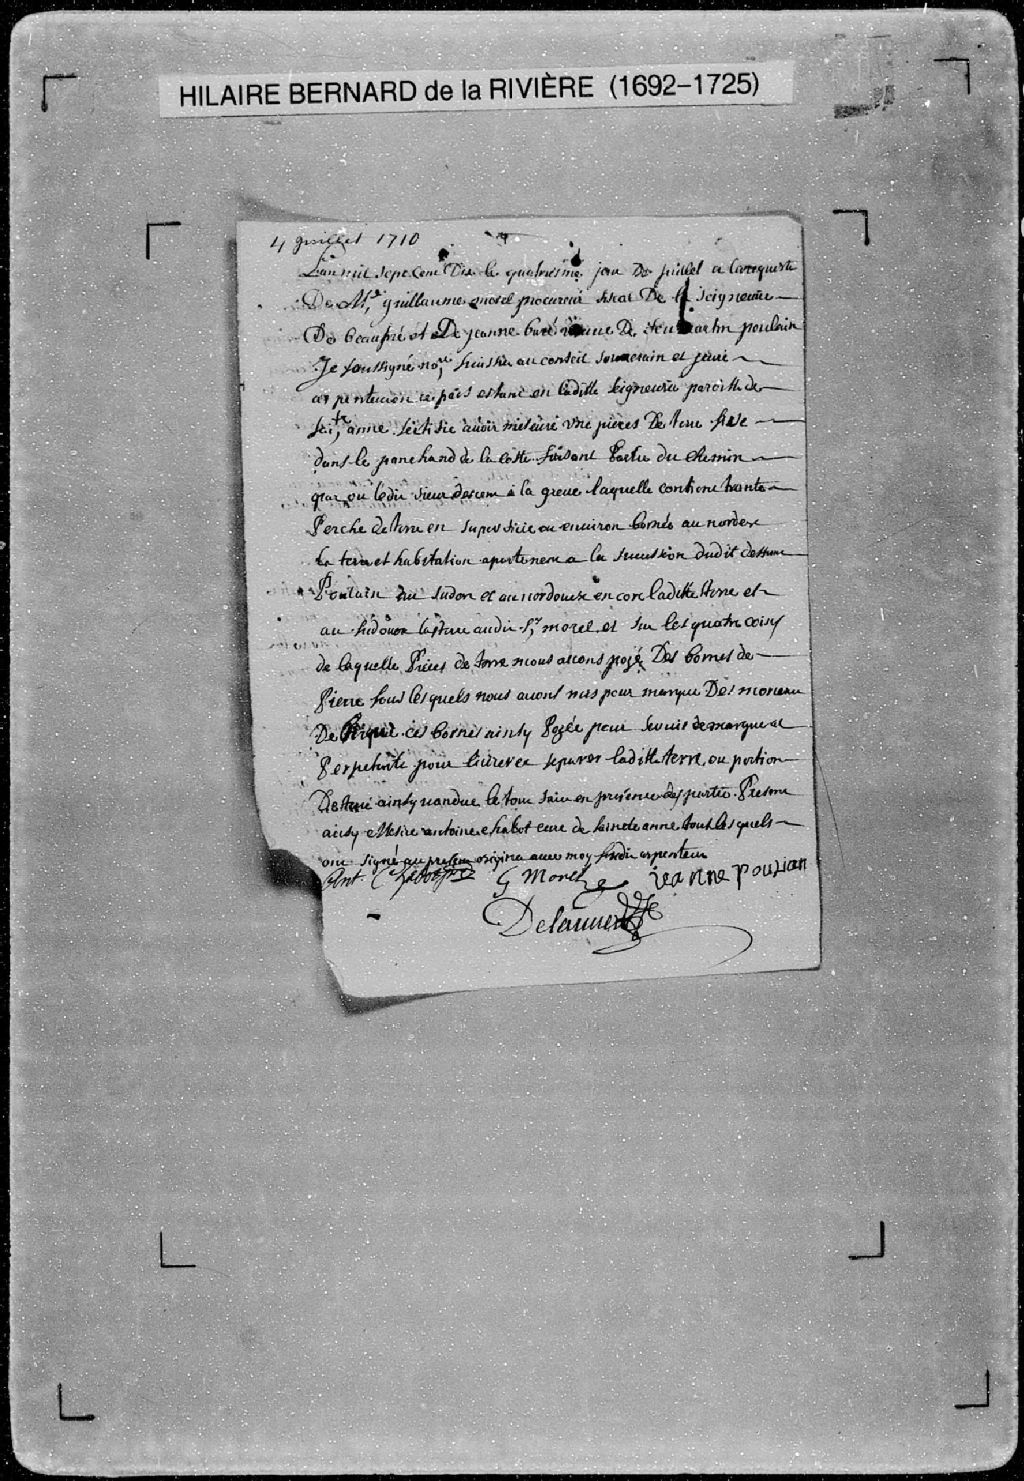 HILAIRE BERNARD de la RIVIÈRE (1692–1725)
4 Juillet 1710
L'an mil sept cent Dix le quatriesme jour de juillet a la requeste
De Mre guillaume morel procureur fiscal De la seigneurie
De beaupré et De jeanne baré veuve De feu martin poulain
Je soussigné nore huissier au conseil souverain et juré
arpenteur en ce païs estant en laditte seigneurie paroisse de
sainte anne certifie avoir mesuré une pieces De terre size
dans le panchand de la coste faisant partie du chemin
par ou ledit sieur descent à la greve laquelle contient trante
Perche de terre en superficie ou environ bornée au nordest
la terre et habitation apartenent a la succession dudit deffunt
Poulain au sudon et au nordouest encore laditte terre et
au sudouest la terre audit Sr morel et sur les quatre coins
de laquelle Pieces de terre nous avons pozé Des bornes de
Pierre sous lesquels nous avons mis pour marque Des morceau
De brique ces bornes ainsy Pozée pour servir de marque a
Perpetuité pour separer laditte terre ou portion
De terre ainsy vandue le tout fait en presence des partie Presens
aussy Messire antoine chabot curé de sainte anne tous lesquels
ont signé au present origina avec moy susdit arpenteur
Ant. Chabot ptre G Morel jeanne poulain
Delariviere